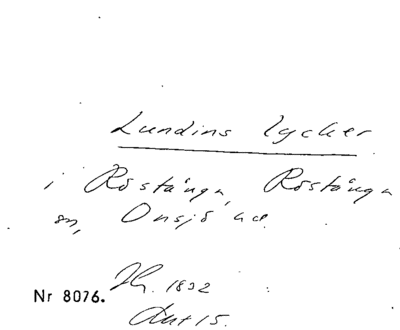 Lundins lycker
i Röstånga, Röstånga
sn, Onsjö hd.
Nr 8076. H. 1832
Ant 15.